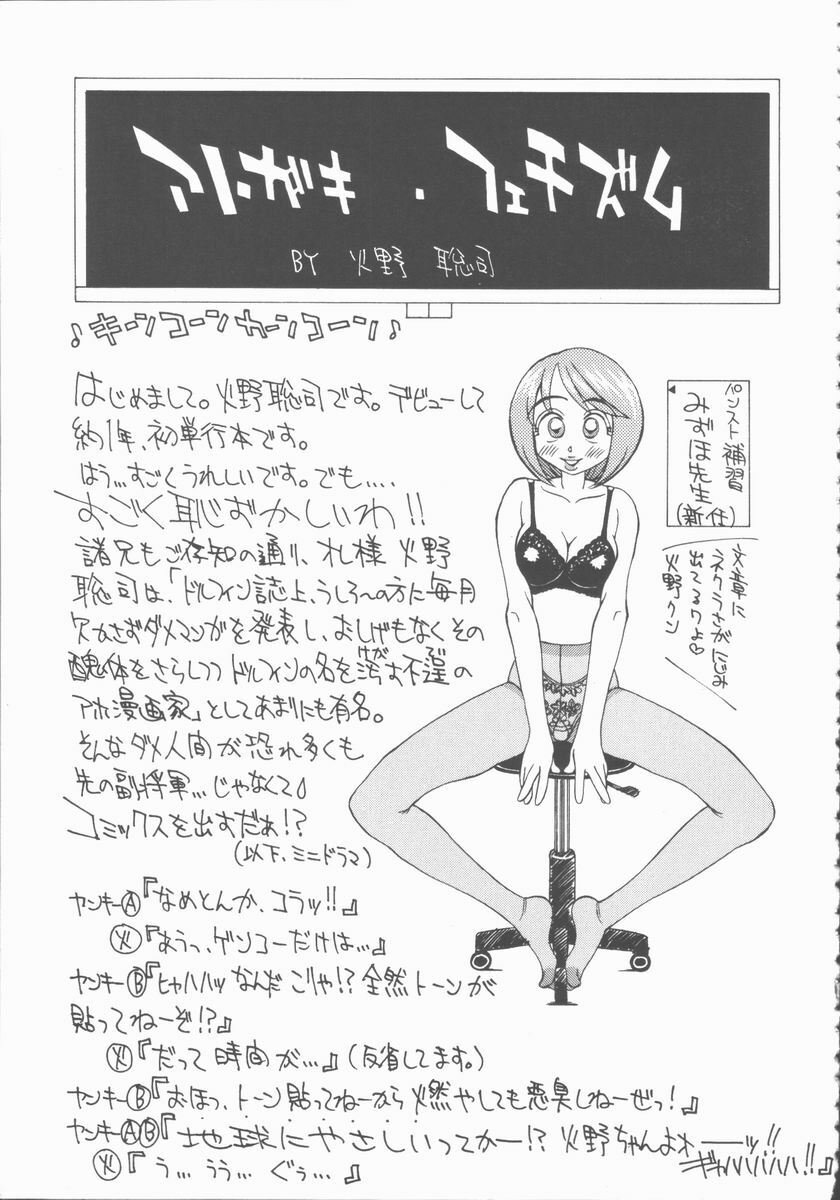 BY 火野 聡司
♪キーンコーンカーンコーン♪
はじめまして。火野聡司です。デビューして
約1年、初単行本です。
はう…すごくうれしいです。でも‥‥
すごく恥ずかしいわ!!
諸兄もご存知の通り、オレ様 火野
聡司は、「ドルフィン誌上、うしろ〜の方に毎月
欠かさずダメマンガを発表し、おしげもなくその
醜体をさらしつつドルフィンの名を汚す不逞の
アホ漫画家」としてあまりにも有名。
そんなダメ人間が恐れ多くも
先の副将軍…じゃなくて♪
コミックスを出すだぁ!?
(以下、ミニドラマ)
ヤンキーⒶ『なめとんか、コラッ!!』
㊋『あうっ、ゲンコーだけは…』
ヤンキーⒷ『ヒャハハッなんだ こりゃ!? 全然トーンが
貼ってねーぞ!?』
㊋『だって時間が…』(反省してます。)
ヤンキーⒷ『おほっ、トーン貼ってねーから燃やしても悪臭しねーぜっ!』
ヤンキーⒶⒷ『地球にやさしいってかー!? 火野ちゃんよォーーッ!!
ギャハハハハ!!』
㊋『う… うう… ぐう…』
パンスト補習
みずほ先生
(新任)
文章に
ネクラさがにじみ
出てるワよ♡
火野クン